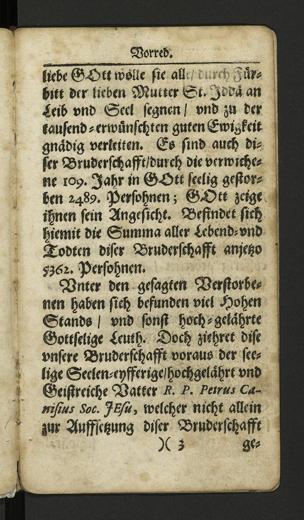 Vorred.
liebe GOtt wolle sie alle/ durch Für-
bitt der lieben Mutter St. Iddä an
Leib vnd Seel segnen/ vnd zu der
tausend-erwünschten guten Ewigkeit
gnädig verleiten. Es sind auch di-
ser Bruderschafft/durch die verwiche-
ne 109. Jahr in GOtt seelig gestor-
ben 2489. Persohnen; GOtt zeige
ihnen sein Angesicht. Befindet sich
hiemit die Summa aller Lebend-vnd
Todten diser Bruderschafft anjetzo
5362. Persohnen.
Vnter den gesagten Verstorbe-
nen haben sich befunden viel Hohen
Stands/ vnd sonst hoch-gelährte
Gottselige Leuth. Doch ziehret dise
vnsere Bruderschafft voraus der see-
lige Seelen-eyfferige/hochgelährt vnd
Geistreiche Vatter R. P. Petrus Ca-
nisius Soc. JEsu, welcher nicht allein
zur Auffsetzung diser Bruderschafft
)( 3 ge-